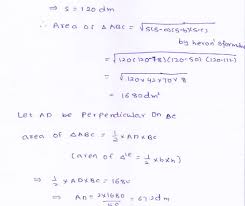 ⇒ S = 120 dm
∴ Area of △ABC = √S(S-a)(S-b)(S-c)
by heron's formula
= √120(120-78)(120-50)(120-112)
= √120×42×70×8
= 1680 dm²
Let AD be perpendicular on BC
area of △ABC = 1/2 × AD × BC
(area of △le = 1/2 × b × h)
⇒ 1/2 × AD × BC = 1680
⇒ AD = 2×1680 / = 67.2 dm